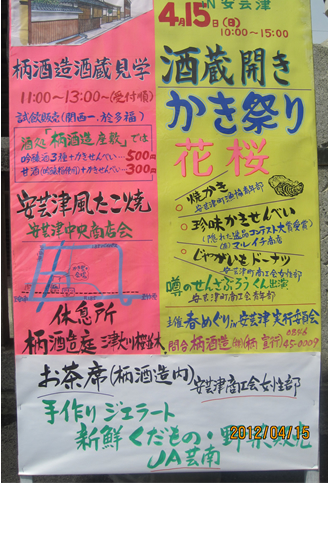 IN安芸津
4月15日(日)
10:00~15:00
酒蔵開き
かき祭り
花桜
焼かき
珍味かきせんべい
じゃがいもドーナツ
安芸津町商工会女性部
噂のせんざぶろうくん出演
安芸津町商工会青年部
主催 春めぐりin安芸津 実行委員会
問合 柄酒造(株)(柄 宣行) 0846 45-0009
柄酒造酒蔵見学
11:00~13:00~(受付順)
試飲販売(関西一、於多福)
酒処「柄酒造座敷」では
吟醸酒3種+かきせんべい…500円
+かきせんべい…300円
安芸津風たこ焼
安芸津中央商店会
休息所
柄酒造庭
お茶席(柄酒造内) 安芸津商工会女性部
手作りジェラート
新鮮くだもの・野菜販売
JA芸南
2012/04/15